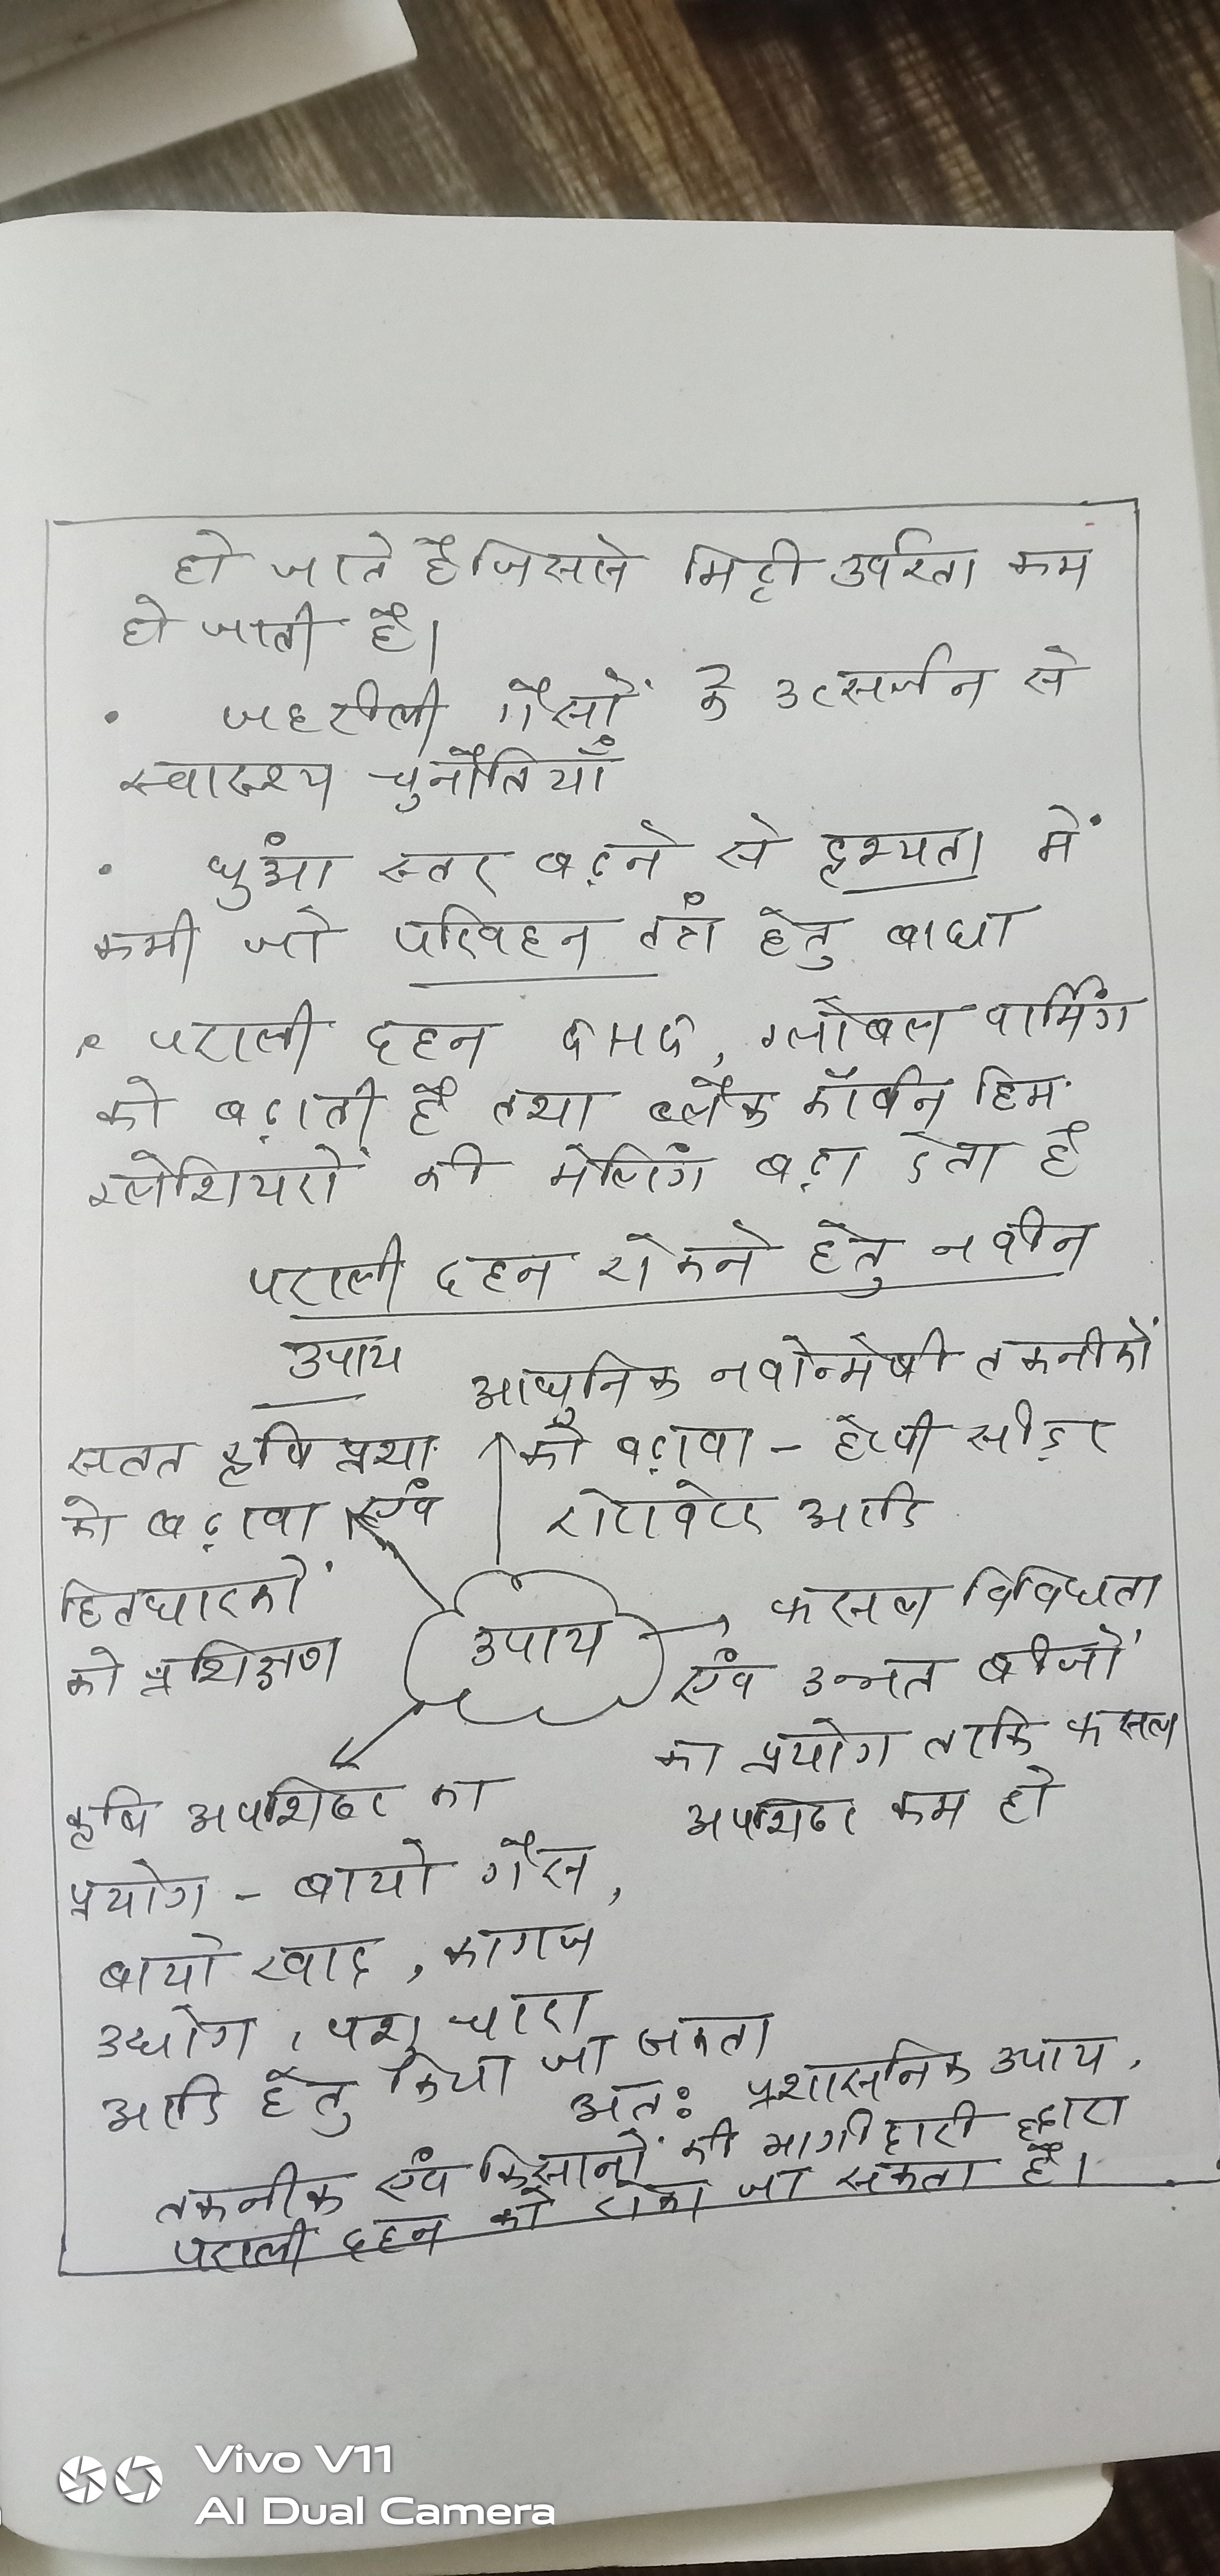 हो जाते है जिससे मिट्टी उर्वरता कम
हो जाती है।
• जहरीली गैसों के उत्सर्जन से
स्वास्थ्य चुनौतियाँ
• धुंआ स्तर बढ़ने से दृश्यता में
कमी जो परिवहन तंत्र हेतु बाधा
• पराली दहन ग्लोबल वार्मिंग
को बढ़ाती है तथा ब्लैक कॉर्बन हिम
ग्लेशियरों की मेल्टिंग बढ़ा देता है
पराली दहन रोकने हेतु नवीन
उपाय
आधुनिक नवोन्मेषी तकनीकों
को बढ़ावा - हैप्पी सीडर
रोटावेटर आदि
सतत कृषि प्रथा
को बढ़ावा एंव
हितधारकों
को प्रशिक्षण
उपाय
फसल विविधता
एंव उन्नत बीजों
का प्रयोग ताकि फसल
अपशिष्ट कम हो
कृषि अपशिष्ट का
प्रयोग - बायो गैस,
बायो खाद, कागज
उद्योग, पशु चारा
आदि हेतु किया जा सकता
अतः प्रशासनिक उपाय,
तकनीक एंव किसानों की भागीदारी द्वारा
पराली दहन को रोका जा सकता है।
Vivo V11
AI Dual Camera